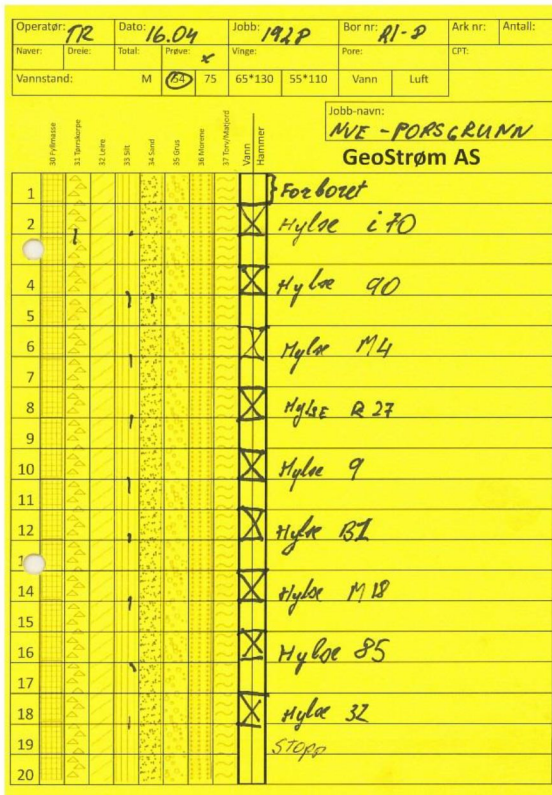 Operatør: TR Dato: 16.04 Jobb: 1928 Bor nr: RI-8 Ark nr: Antall:
Naver: Dreie: Total: Prøve: x Vinge: Pore: CPT:
Vannstand: M 54 75 65*130 55*110 Vann Luft
Jobb-navn:
NVE - PORSGRUNN
30 Fyllmasse 31 Tørrskorpe 32 Leire 33 Silt 34 Sand 35 Grus 36 Morene 37 Torv/Matjord Vann Hammer
GeoStrøm AS
1 Forboret
2 Hylse i70
4 Hylse 90
5
6 Hylse M4
7
8 HYLSE R27
9
10 Hylse 9
11
12 Hylse B1
14 Hylse M18
15
16 Hylse 85
17
18 Hylse 32
19 STOPP
20